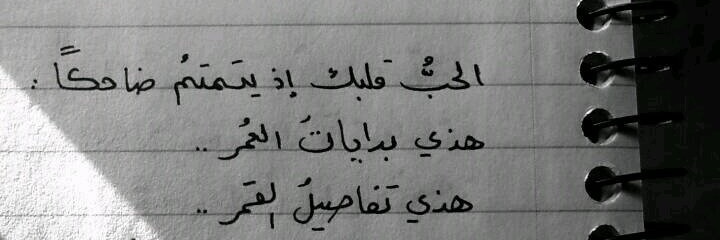 الحبُّ قلبك إذ يتمتمُ ضاحكاً :
هذي بداياتُ العُمر ..
هذي تفاصيلُ القمر ..